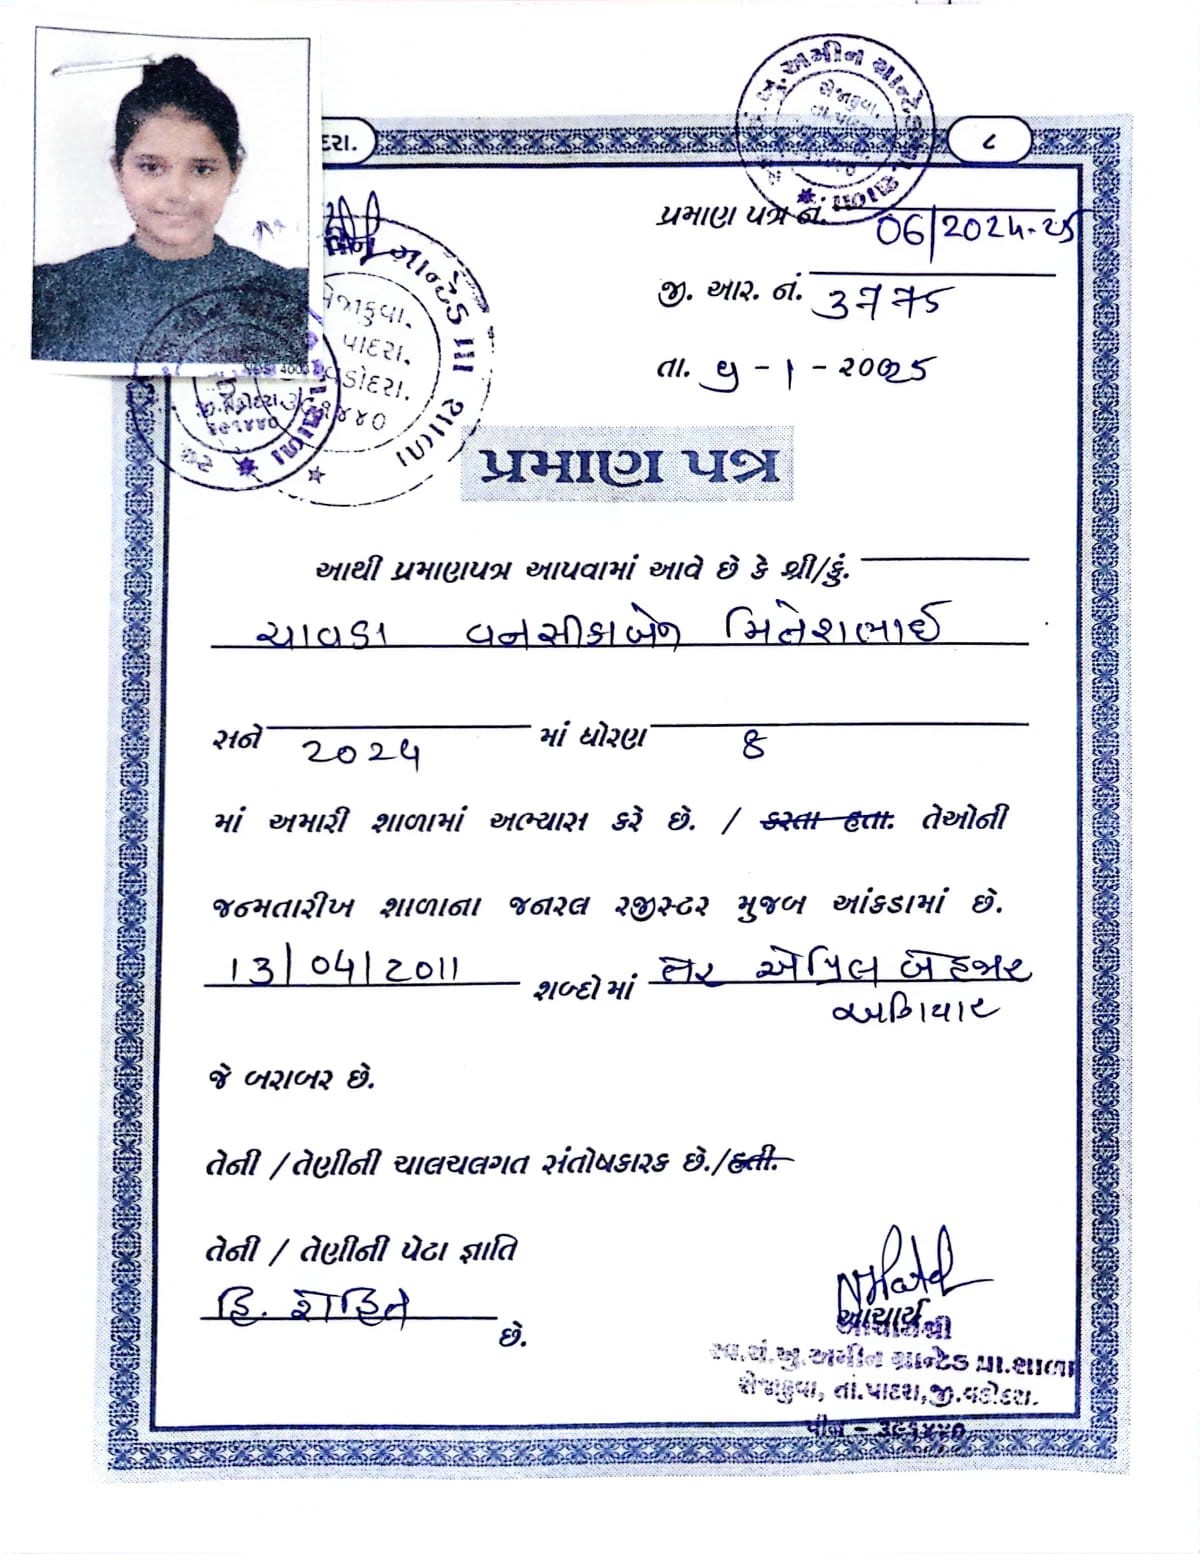 દરા.
૮
પ્રમાણ પત્ર નં. 06/2024-25
જી. આર. નં. 3775
તા. - 1 - ૨૦૨5
સેજાકુવા.
પાદરા.
વડોદરા.
પ્રમાણ પત્ર
આથી પ્રમાણપત્ર આપવામાં આવે છે કે શ્રી/કું.
ચાવડા વનસીકાબેન મિતેશભાઈ
સને 2024 માં ધોરણ 8
માં અમારી શાળામાં અભ્યાસ કરે છે. / કરતા હતા. તેઓની
જન્મતારીખ શાળાના જનરલ રજીસ્ટર મુજબ આંકડામાં છે.
13/04/2011 શબ્દોમાં તેર એપ્રિલ બેહજાર
અગિયાર
જે બરાબર છે.
તેની / તેણીની ચાલચલગત સંતોષકારક છે./હતી.
તેની / તેણીની પેટા જ્ઞાતિ
હિ. રોહિત છે.
આચાર્ય
આચાર્યશ્રી
સ્વ.ચં.ખુ.અમીન ગ્રાન્ટેડ પ્રા.શાળા
સેજાકુવા, તા.પાદરા,જી.વડોદરા.
પીન - ૩૯૧૪૪૦